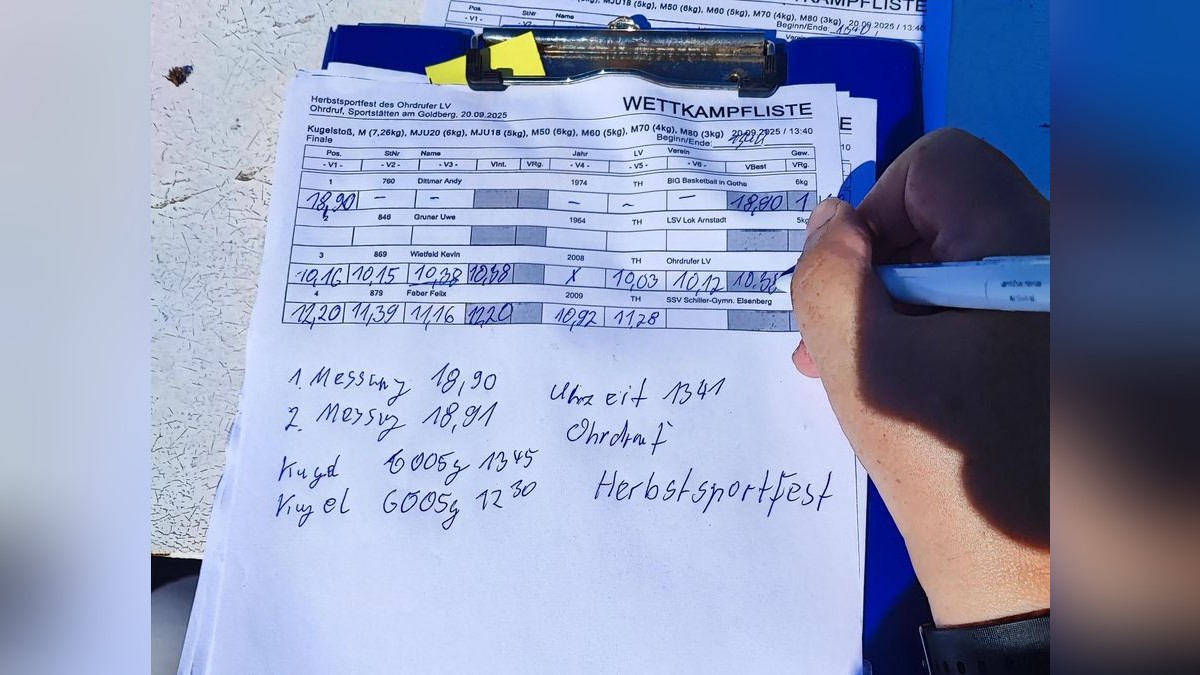 Pos. StNr Name
- V1 - - V2 -
MJU18 (5kg), M50 (6kg), M60 (5kg), M70 (4kg), M80 (3kg) 20.09.2025 / 13:40
Beginn/Ende:
Herbstsportfest des Ohrdrufer LV
Ohrdruf, Sportstätten am Goldberg, 20.09.2025
WETTKAMPFLISTE
Kugelstoß, M (7,26kg), MJU20 (6kg), MJU18 (5kg), M50 (6kg), M60 (5kg), M70 (4kg), M80 (3kg) 20.09.2025 / 13:40
Finale Beginn/Ende:
Pos. StNr Name Jahr LV Verein Gew.
- V1 - - V2 - - V3 - VInt. VRg. - V4 - - V5 - - V6 - VBest VRg.
1 760 Dittmar Andy 1974 TH BIG Basketball in Gotha 6kg
18,90 – – – – – 18,90 1
2 846 Gruner Uwe 1964 TH LSV Lok Arnstadt 5kg
3 869 Wietfeld Kevin 2008 TH Ohrdrufer LV
10,16 10,15 10,38 10,38 X 10,03 10,12 10.38
4 879 Faber Felix 2009 TH SSV Schiller-Gymn. Eisenberg
12,20 11,39 11,16 12,20 10,92 11,28
1. Messung 18,90
2. Messug 18,91
Uhrzeit 1341
Ohrdruf
Kugel 6005g 1345
Kugel 6005g 1230
Herbstsportfest